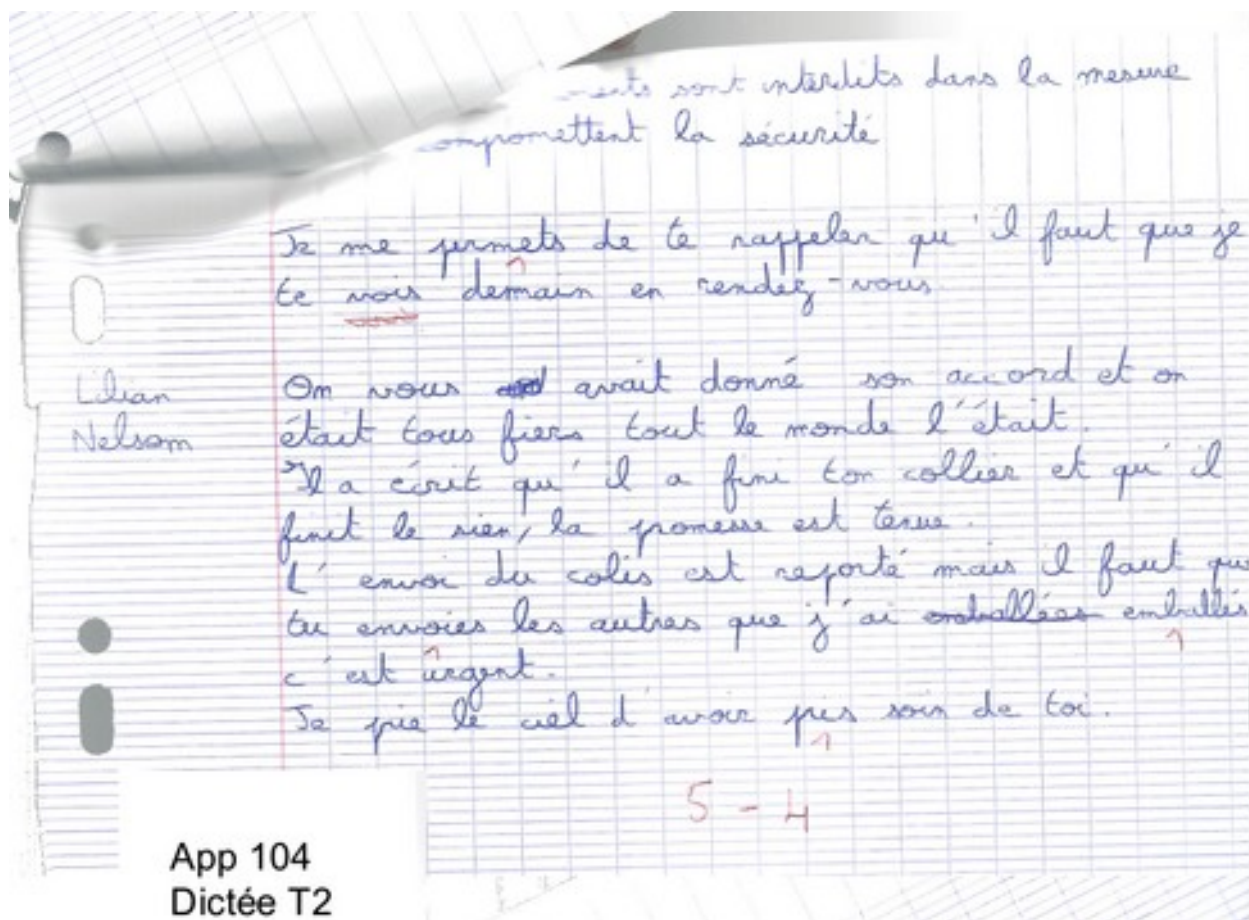 sont interdits dans la mesure
compromettent la sécurité
Je me permets de te rappeler qu'il faut que je
te vois demain en rendez-vous.
Lilian
Nelsom
On vous avait donné son accord et on
était tous fiers tout le monde l'était.
Il a écrit qu'il a fini ton collier et qu'il
finit le sien, la promesse est tenue.
L'envoi du colis est reporté mais il faut que
tu envoies les autres que j'ai emballées emballés
c'est urgent.
Je prie le ciel d'avoir pris soin de toi.
5 - 4
App 104
Dictée T2